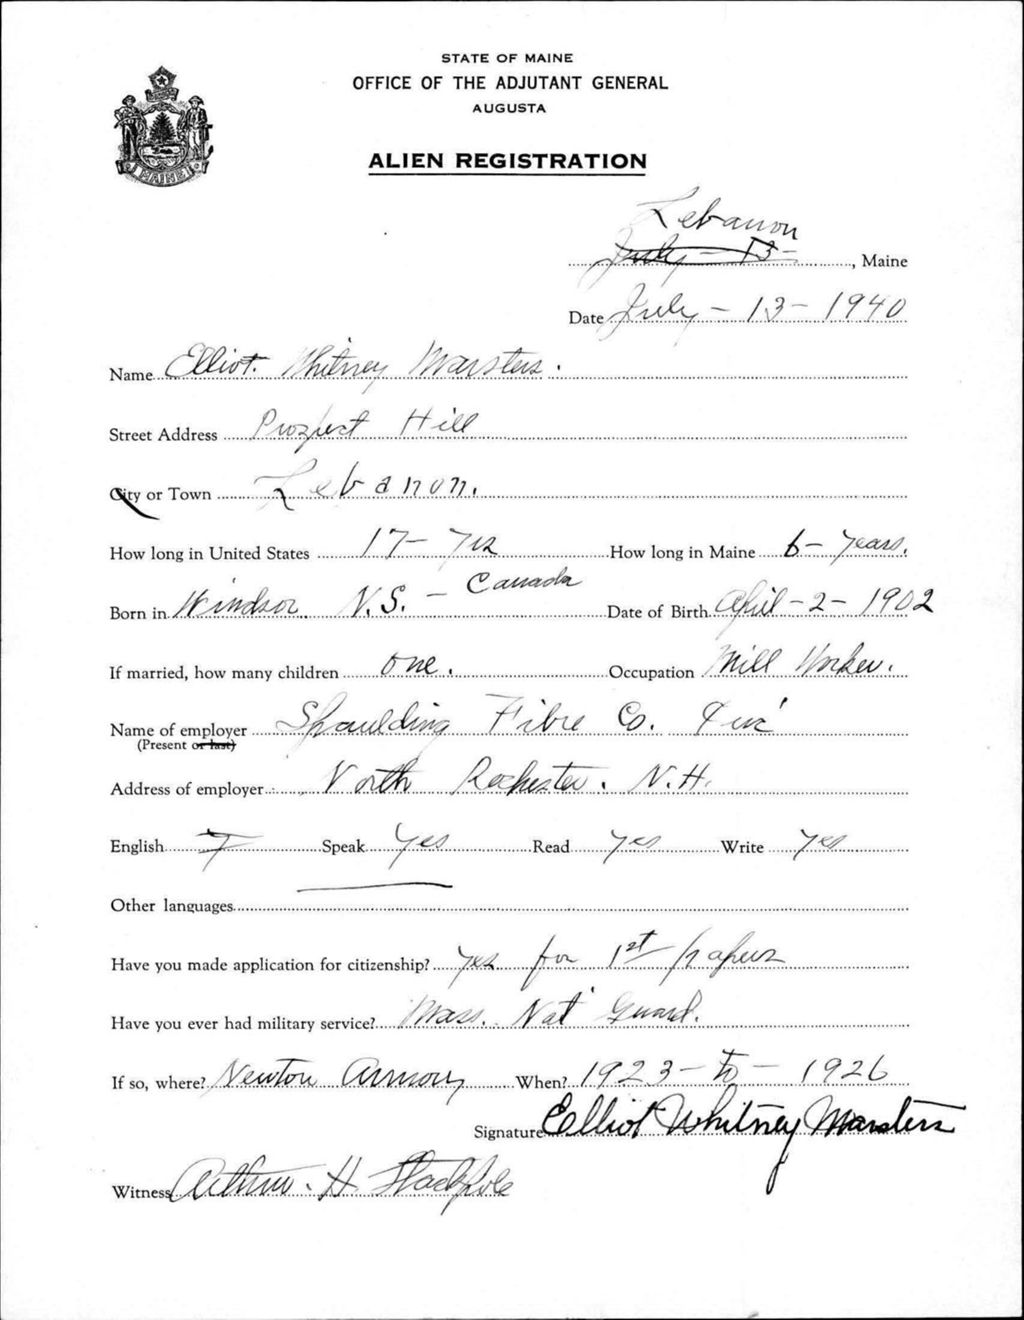 STATE OF MAINE
OFFICE OF THE ADJUTANT GENERAL
AUGUSTA
ALIEN REGISTRATION
MAINE
Lebanon
July - 13 - , Maine
Date July - 13 - 1940
Name Elliot Whitney Marsters.
Street Address Prospect Hill
City or Town Lebanon.
How long in United States 17 - yrs How long in Maine 6 - years.
Born in Windsor N.S. - Canada Date of Birth April - 2 - 1902
If married, how many children one. Occupation Mill Worker.
Name of employer Spaulding Fibre Co. Inc
(Present or last)
Address of employer North Rochester. N.H.
English Speak Yes Read yes Write yes
Other languages
Have you made application for citizenship? yes for 1st papers
Have you ever had military service? Mass. Nat' Guard.
If so, where? Newton Armory When? 1923 - to - 1926
Signature Elliot Whitney Marsters
Witness Arthur. H Stackpole